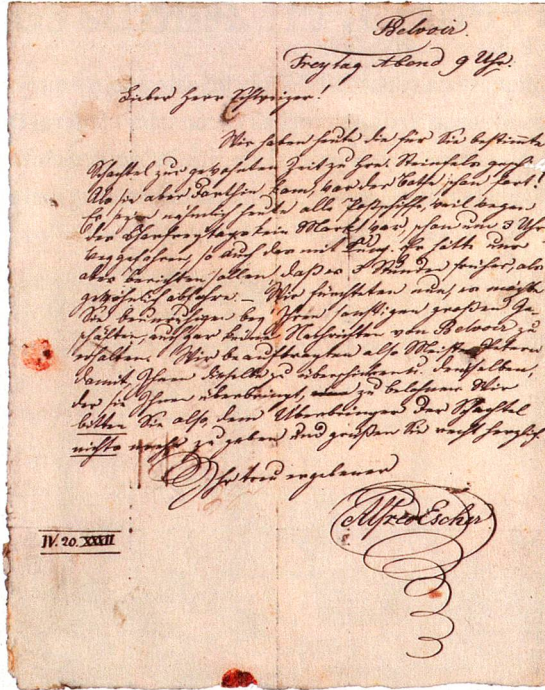 Belvoir.
Freytag Abend 9 Uhr.
Lieber Herr Schweizer!
Wir haben heute die für Sie bestimmte
Schachtel zur gewohnten Zeit zu Hrn. Steinfels geschickt.
Als sie aber dorthin kam, war der Bothe schon fort!
Es seyen nämlich heute alle Postschiffe, weil wegen
des Charfreytags kein Markt war, schon um 3 Uhr
weggefahren, so auch der mit
aber berichten sollen, daß er 3 Stunden früher, als
gewöhnlich abfahre. – Wir fürchteten nun, es möchte
Sie beunruhigen bey Ihren sonstigen großen Ge-
schäften, auch gar keine Nachrichten von Belvoir zu
erhalten. Wir beauftragten also Meister
damit, Ihnen dieselbe zu überschicken u. denselben,
der sie Ihnen überbringt, zu belohnen. Wir
bitten Sie also, dem Überbringer der Schachtel
nichts mehr zu geben und grüßen Sie recht herzlich.
Ihr treu ergebener
Alfred Escher
IV. 20. XXXII